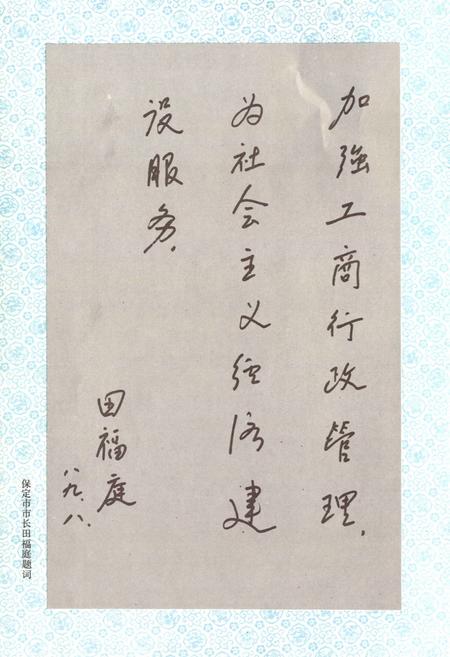 加强工商行政管理,
为社会主义经济建
设服务.
田福庭
八九.八.
保定市市长田福庭题词